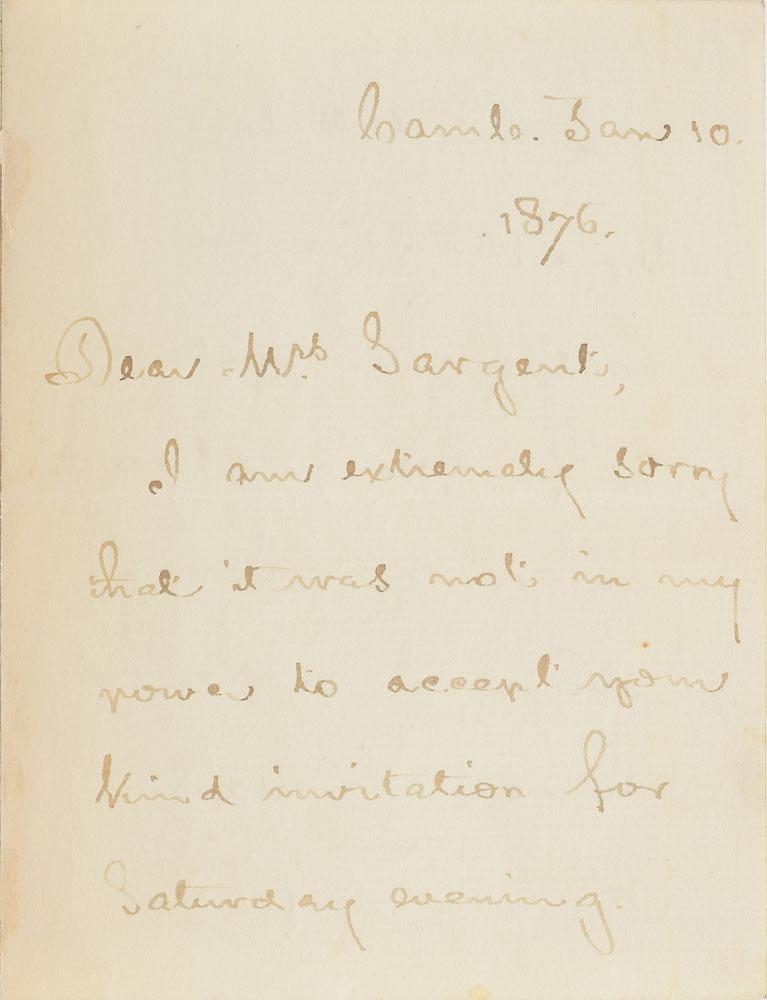 Camb. Jan 10.
1876.
Dear Mrs Sargent,
I am extremely sorry
that it was not in my
power to accept your
kind invitation for
Saturday evening.